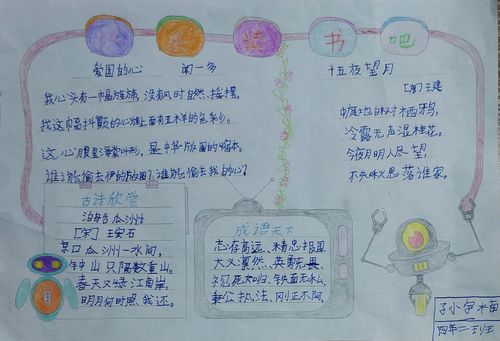 读书吧
爱国的心 闻一多
我心头有一幅旌旆,没有风时自然摇摆。
我这幅抖颤的心旌上面有五样的色彩。
这心腹里海棠叶形,是中华版图的缩本。
谁能偷去伊的版图?谁能偷去我的心?
十五夜望月
[唐]王建
中庭地白树栖鸦,
冷露无声湿桂花。
今夜月明人尽望,
不知秋思落谁家。
古诗欣赏
泊船瓜洲
[宋]王安石
京口瓜洲一水间,
钟山只隔数重山。
春天又绿江南岸,
明月何时照我还。
成语天下
志存高远、精忠报国
大义凛然、英勇无畏
视死如归、铁面无私
秉公执法、刚正不阿
四年二班